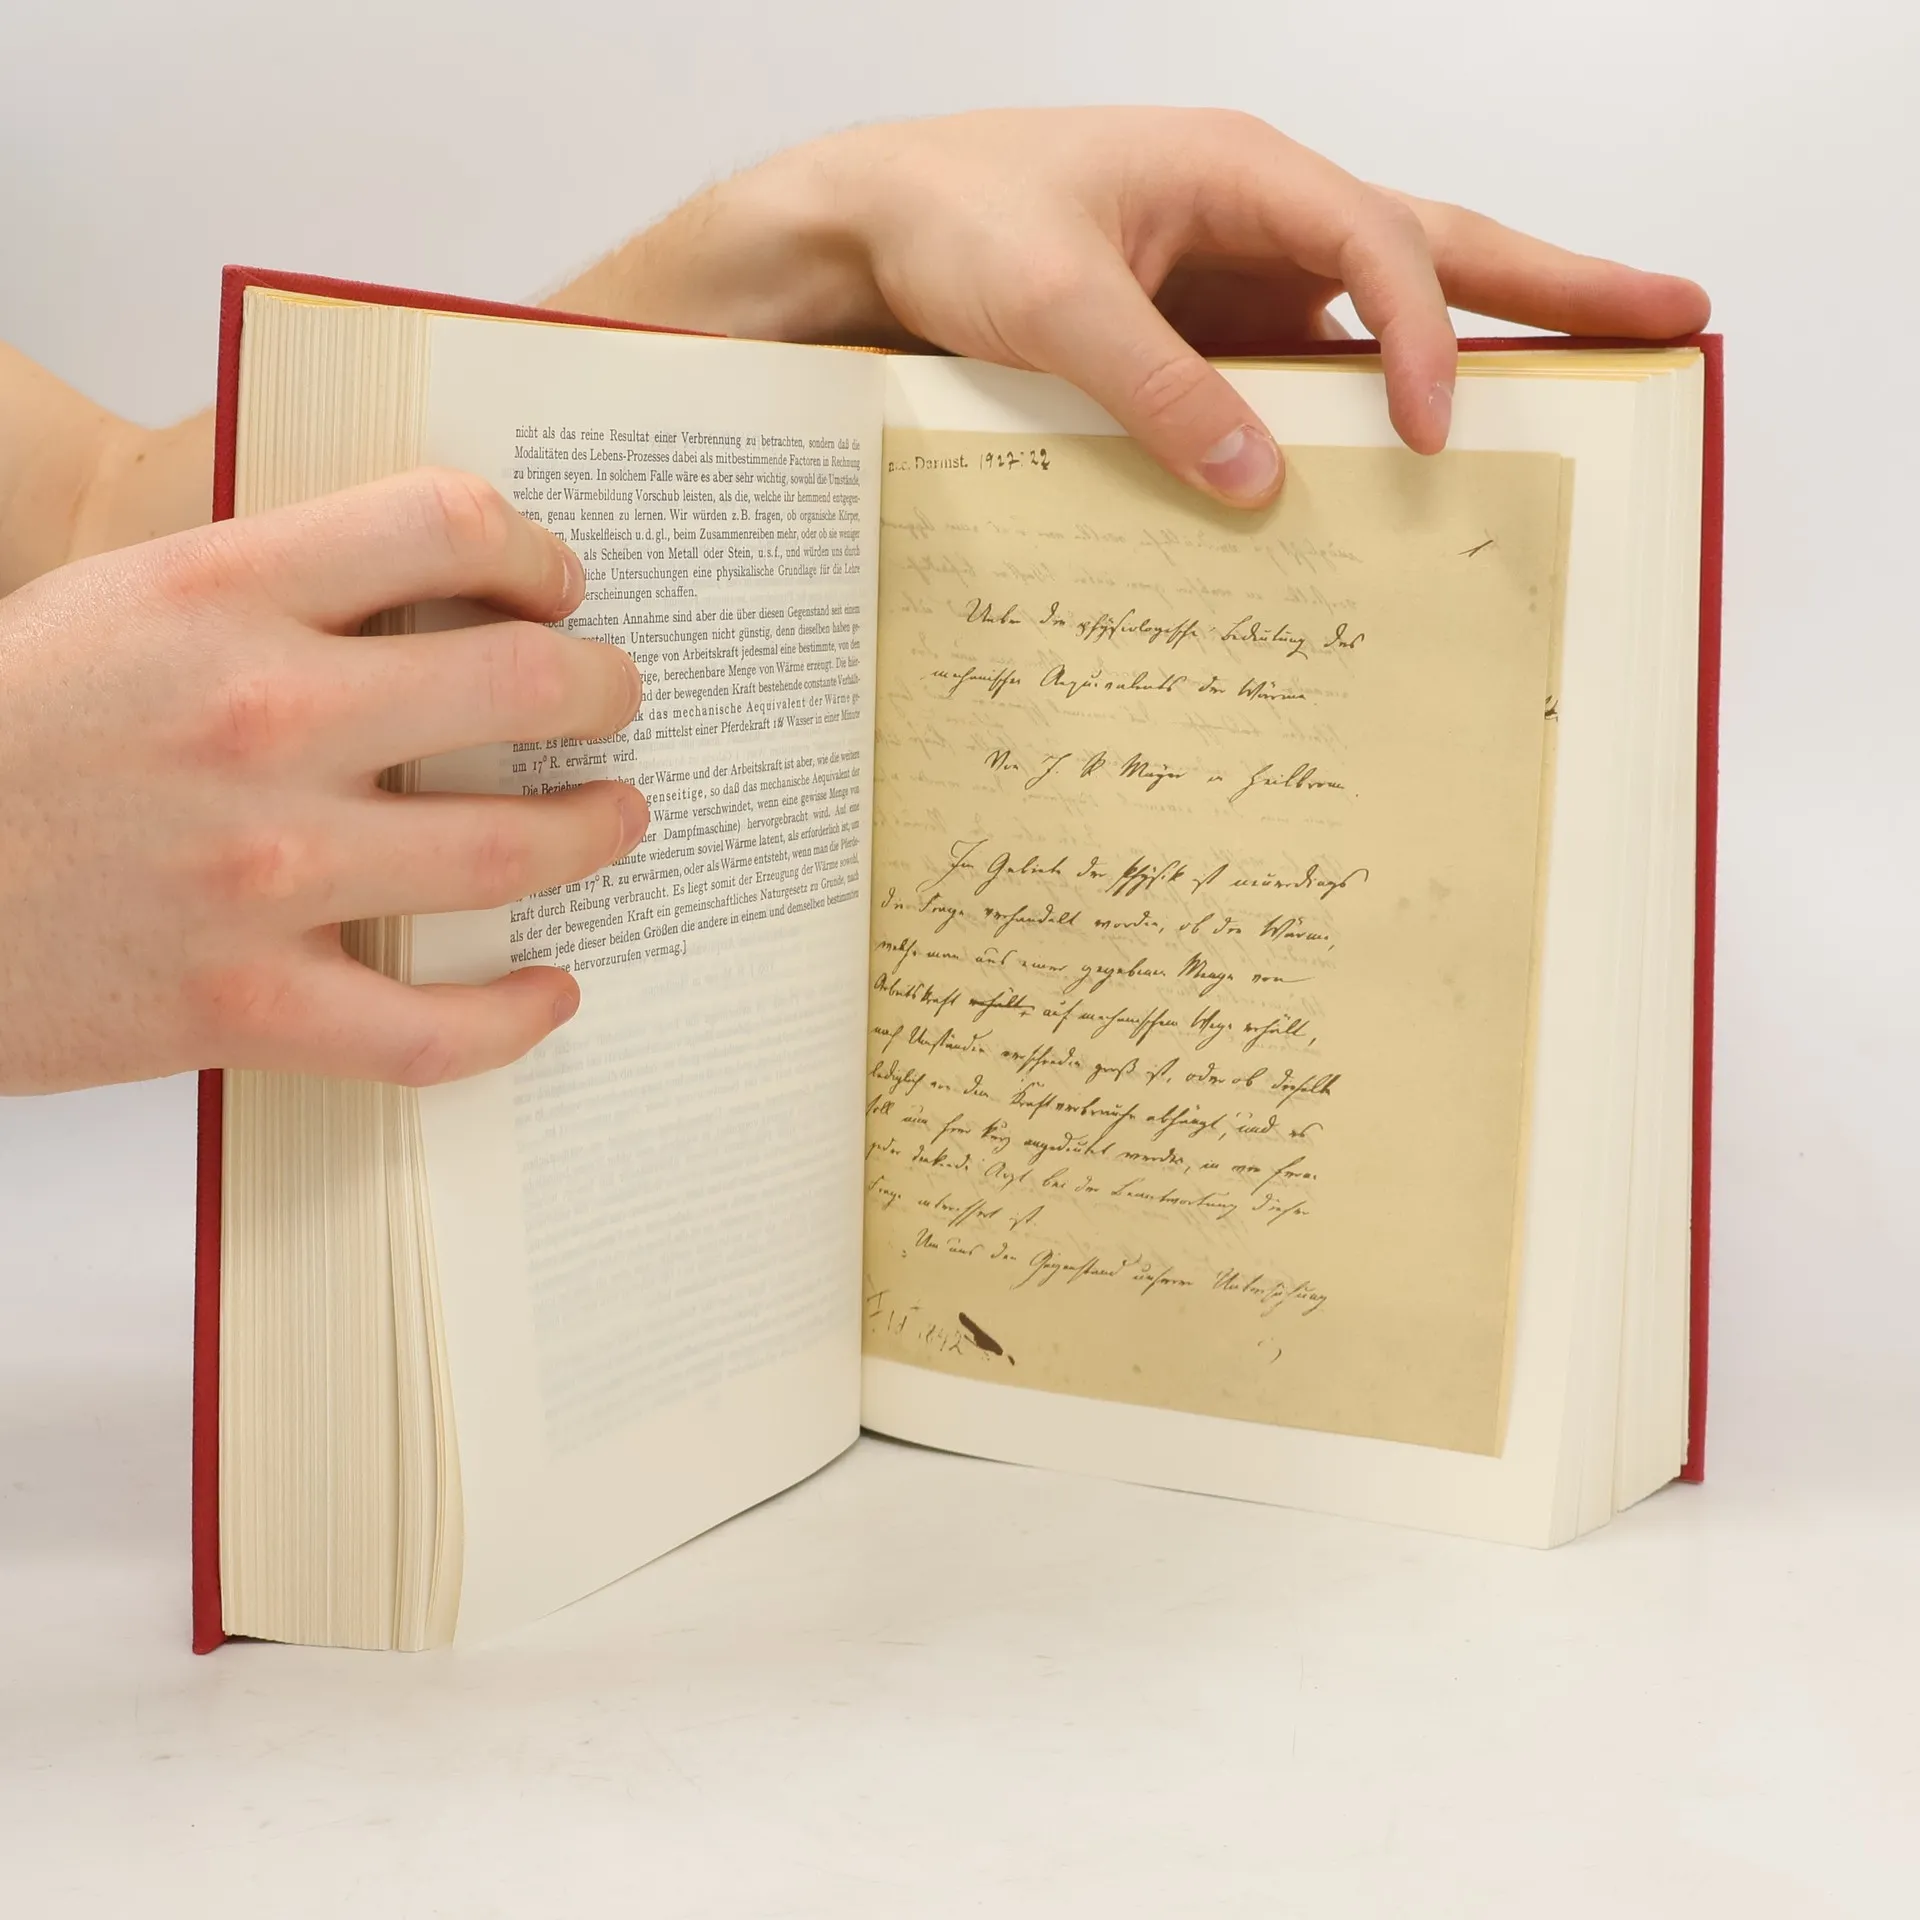 nicht als das reine Resultat einer Verbrennung zu betrachten, sondern daß die
Modalitäten des Lebens-Prozesses dabei als mitbestimmende Factoren in Rechnung
zu bringen seyen. In solchem Falle wäre es aber sehr wichtig, sowohl die Umstände,
welche der Wärmebildung Vorschub leisten, als die, welche ihr hemmend entgegen-
reten, genau kennen zu lernen. Wir würden z.B. fragen, ob organische Körper,
rn, Muskelfleisch u.d.gl., beim Zusammenreiben mehr, oder ob sie weniger
als Scheiben von Metall oder Stein, u.s.f., und würden uns durch
liche Untersuchungen eine physikalische Grundlage für die Lehre
erscheinungen schaffen.
ben gemachten Annahme sind aber die über diesen Gegenstand seit einem
gestellten Untersuchungen nicht günstig, denn dieselben haben ge-
Menge von Arbeitskraft jedesmal eine bestimmte, von den
gige, berechenbare Menge von Wärme erzeugt. Die hie-
nd der bewegenden Kraft bestehende constante Verhält-
ik das mechanische Aequivalent der Wärme ge-
nannt. Es lehrt dasselbe, daß mittelst einer Pferdekraft 1 ℔ Wasser in einer Minute
um 17° R. erwärmt wird.
Die Beziehung hen der Wärme und der Arbeitskraft ist aber, wie die weitern
genseitige, so daß das mechanische Aequivalent der
Wärme verschwindet, wenn eine gewisse Menge von
ner Dampfmaschine) hervorgebracht wird. Auf eine
Minute wiederum soviel Wärme latent, als erforderlich ist, um
Wasser um 17° R. zu erwärmen, oder als Wärme entsteht, wenn man die Pferde-
kraft durch Reibung verbraucht. Es liegt somit der Erzeugung der Wärme sowohl,
als der der bewegenden Kraft ein gemeinschaftliches Naturgesetz zu Grunde, nach
welchem jede dieser beiden Größen die andere in einem und demselben bestimmten
sse hervorzurufen vermag.]
acc. Darmst. 1927.22
1
Ueber die physiologische Bedeutung des
mechanischen Aequivalents der Wärme.
Von J. R. Mayer in Heilbronn.
Im Gebiete der Physik ist neuerdings
die Frage verhandelt worden, ob die Wärme,
welche man aus einer gegebenen Menge von
Arbeitskraft erhält, auf mechanischem Wege erhält,
nach Umständen verschieden groß ist, oder ob dieselbe
lediglich von dem Kraftverbrauche abhängt, und es
soll nun hier kurz angedeutet werden, in wie ferne
jeder denkende Arzt bei der Beantwortung dieser
Frage interessirt ist.
Um uns den Gegenstand unserer Untersuchung
1842